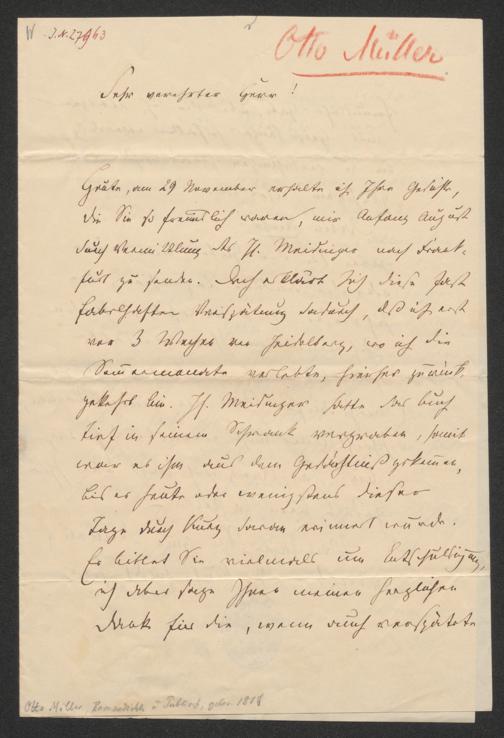 W J.N. 27963
Otto Müller
Sehr verehrter Herr!
Heute, am 29 November erhalte ich Ihre Gedichte,
die Sie so freundlich waren, mir Anfang August
durch Vermittlung des H. Meidinger nach Frank-
furt zu senden. Doch erklärt sich diese fast
fabelhafte Verspätung dadurch, daß ich erst
vor 3 Wochen von Heidelberg, wo ich die
Sommermonate verlebte, hierher zurück-
gekehrt bin. H. Meidinger hatte das Buch
tief in seinem Schrank vergraben, somit
war es ihm aus dem Gedächtniß gekommen,
bis er heute oder wenigstens dieser
Tage durch daran erinnert wurde.
Er bittet Sie vielmals um Entschuldigung,
ich aber sage Ihnen meinen herzlichen
Dank für die, wenn auch verspätete
Otto Müller, geb. 1816